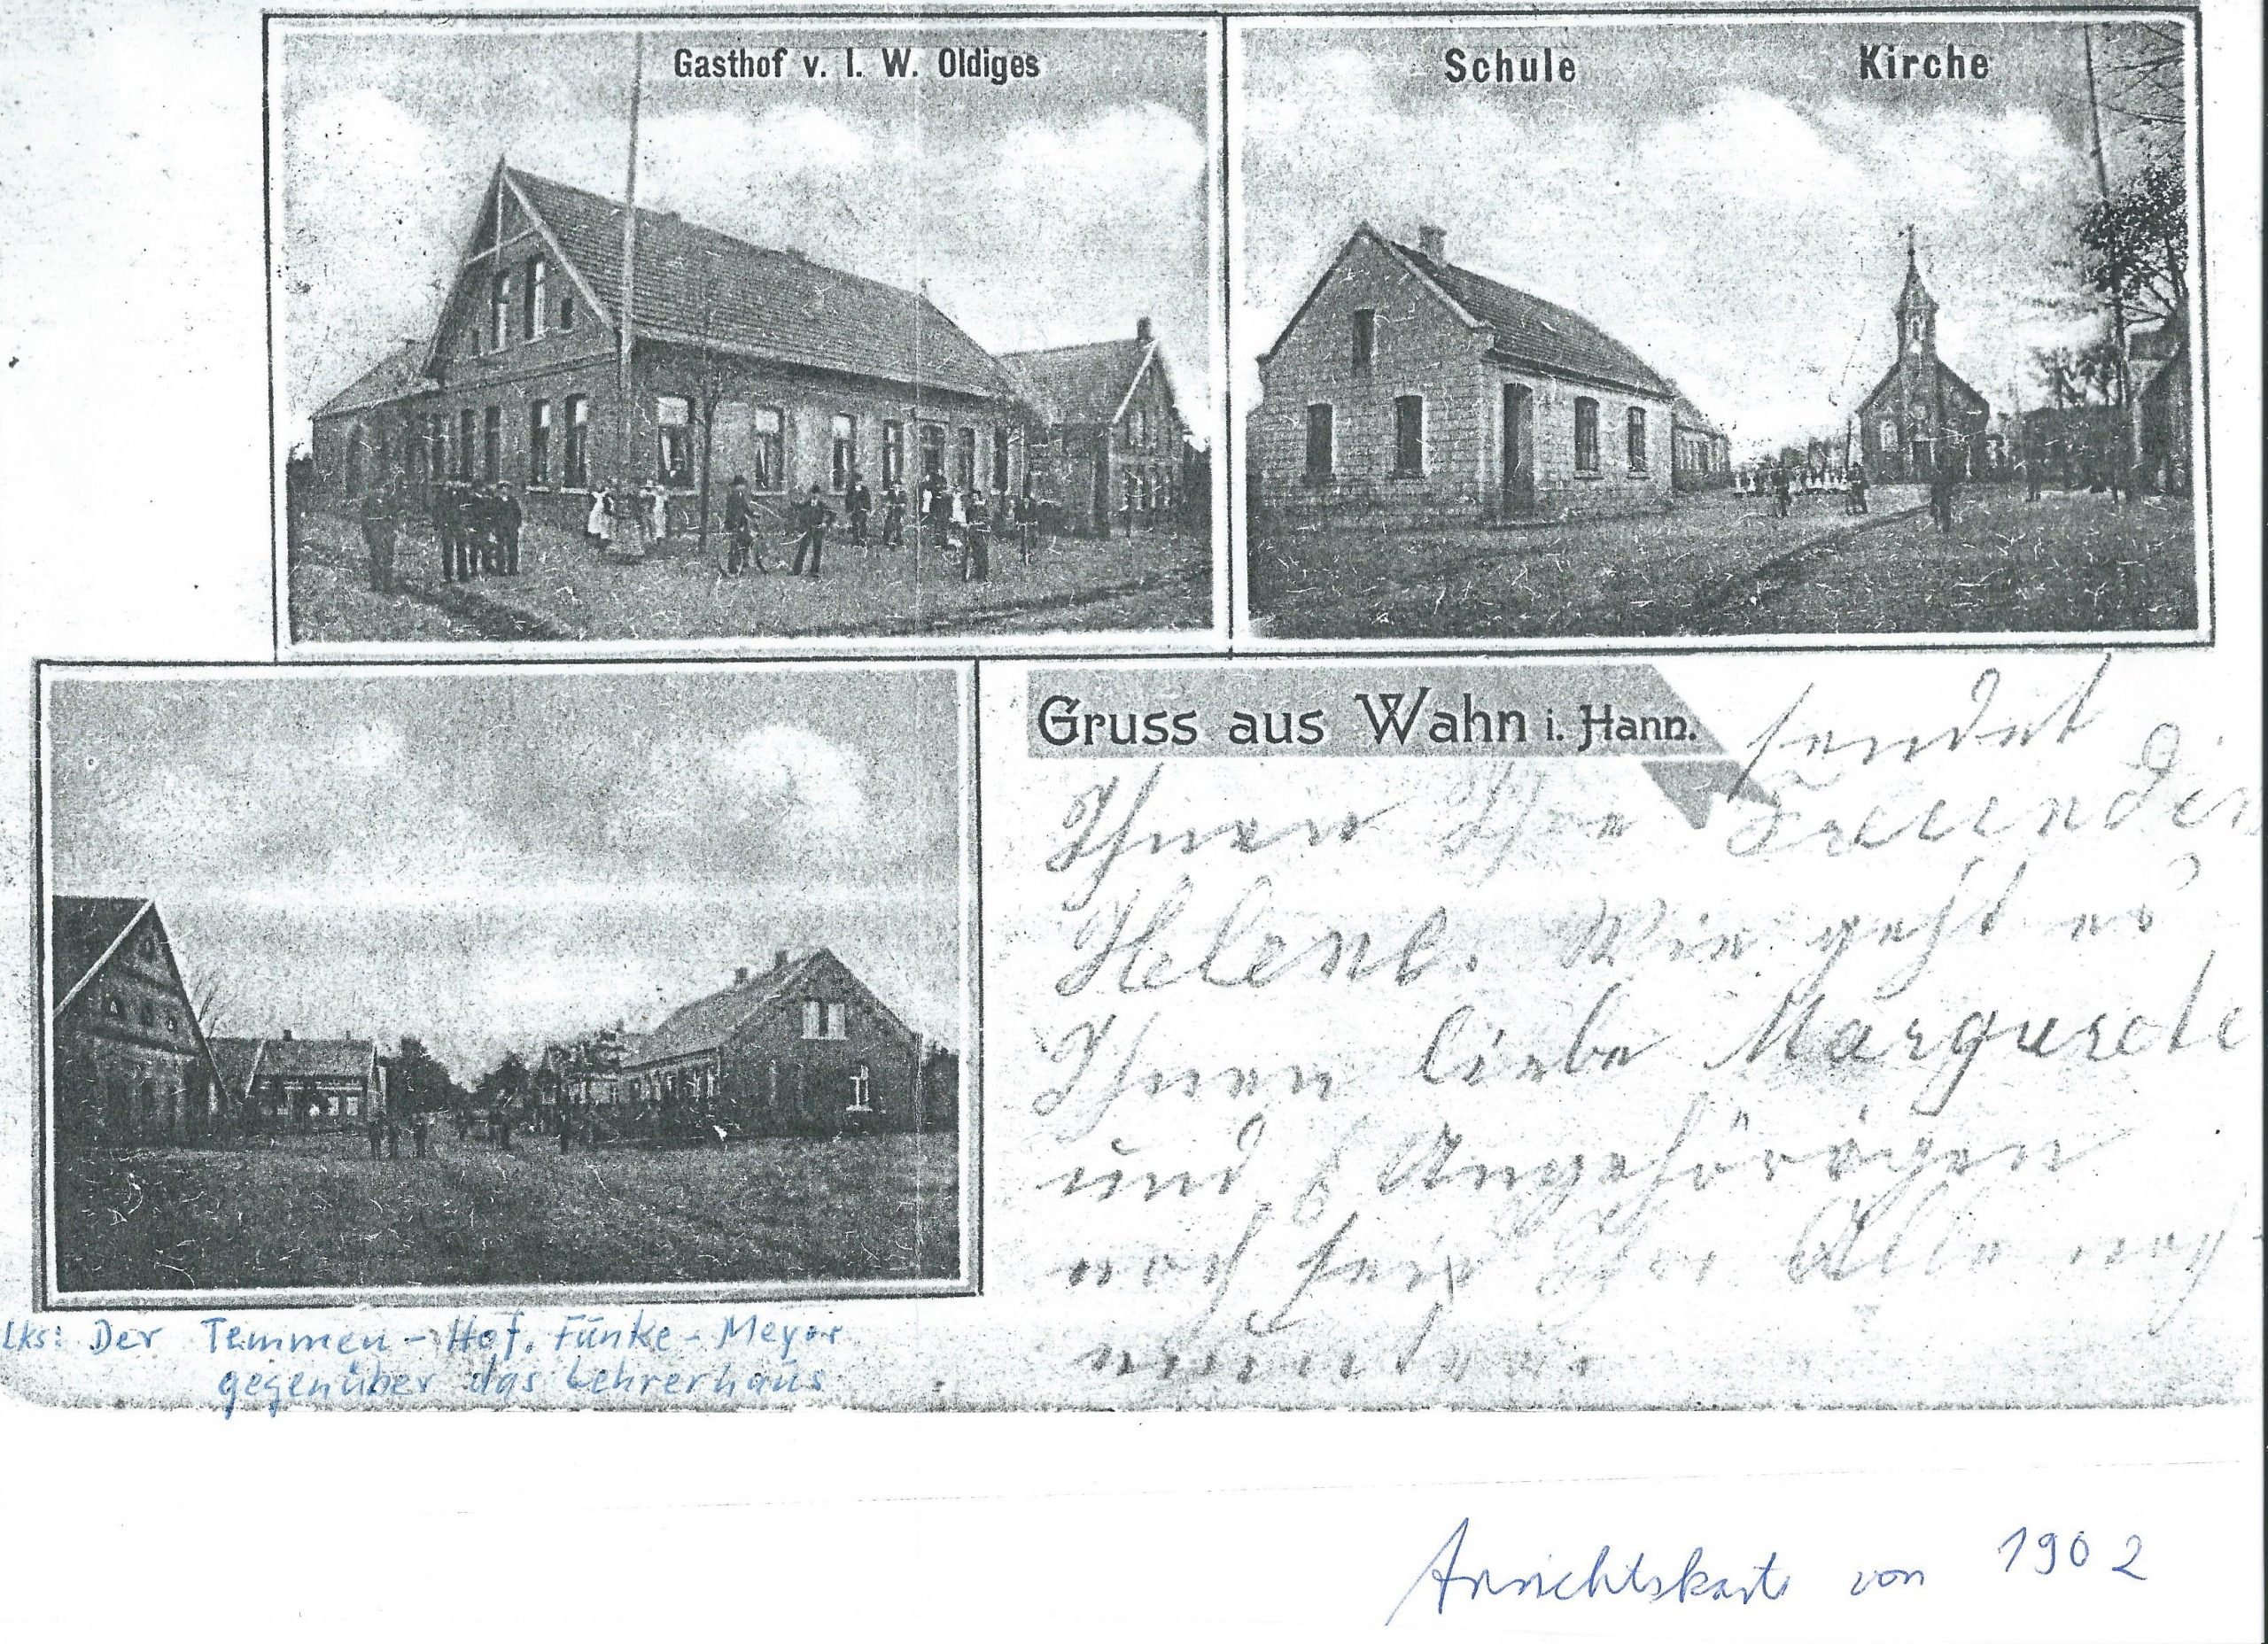 Gasthof v. I. W. Oldiges
Schule Kirche
Gruss aus Wahn i. Hann.
sendet
Ihnen Ihre Freundin
Helene. Wie geht es
Ihnen liebe Margurete
und Angehörigen
noch seid Ihr Alle noch
munter.
Lks: Der Temmen-Hof, Funke-Meyer
gegenüber das Lehrerhaus
Ansichtskarte von 1902